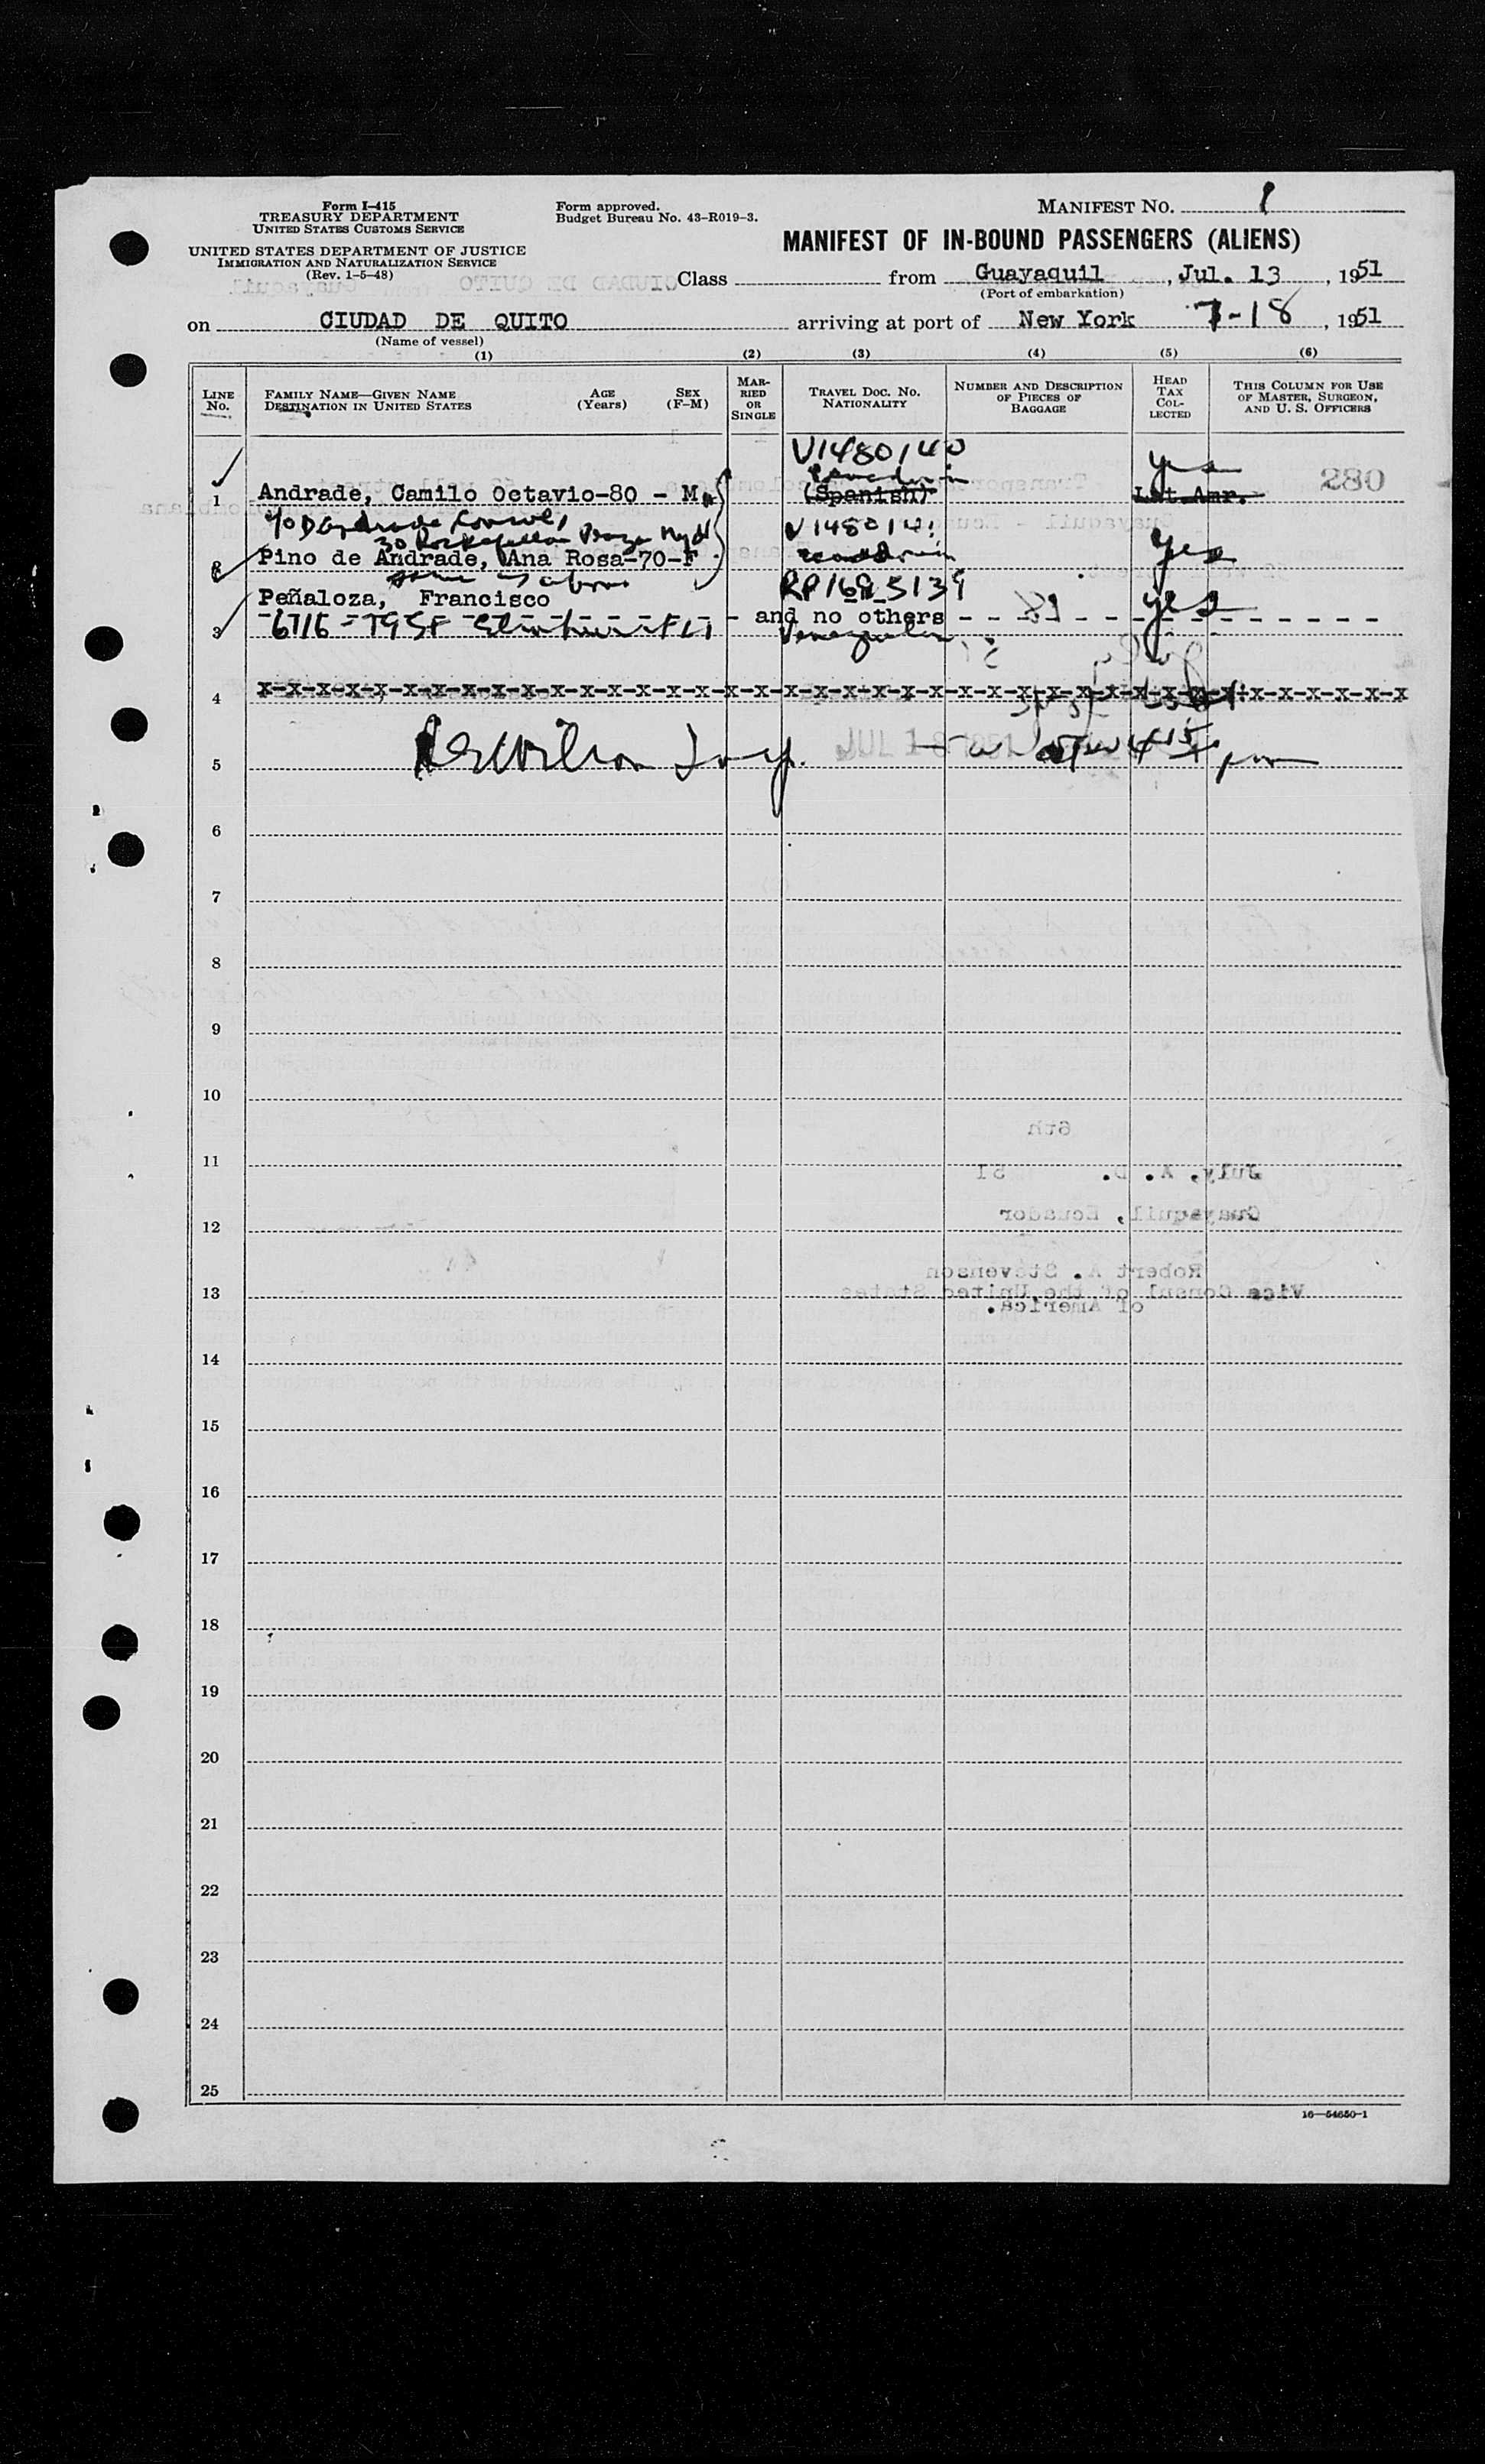 Form I-415
TREASURY DEPARTMENT
UNITED STATES CUSTOMS SERVICE
UNITED STATES DEPARTMENT OF JUSTICE
IMMIGRATION AND NATURALIZATION SERVICE
(Rev. 1-5-48)
Form approved.
Budget Bureau No. 43-R019-3.
MANIFEST NO. 1
MANIFEST OF IN-BOUND PASSENGERS (ALIENS)
Class from Guayaquil, Jul. 13, 1951
(Port of embarkation)
on CIUDAD DE QUITO arriving at port of New York 7-18, 1951
(Name of vessel)
(1) (2) (3) (4) (5) (6)
LINE No. FAMILY NAME—GIVEN NAME DESTINATION IN UNITED STATES AGE (Years) SEX (F-M) MARRIED OR SINGLE TRAVEL DOC. NO. NATIONALITY NUMBER AND DESCRIPTION OF PIECES OF BAGGAGE HEAD TAX COLLECTED THIS COLUMN FOR USE OF MASTER, SURGEON, AND U. S. OFFICERS
V1480140 yes
1 Andrade, Camilo Octavio-80 - M (Spanish) Lat. Amr. 280
c/o D Andrade Consul,
30 Rockefeller Plaza NY V148014 yes
2 Pino de Andrade, Ana Rosa-70-F
same as above
Peñaloza, Francisco yes
3 - and no others - - - - - - - - - - - - - -
Venezuelan
4 x-x-x-x-x-x-x-x-x-x-x-x-x-x-x-x-x-x-x-x-x-x-x-x-x-x-x-x-x-x-x-x-x-x-x-x-x-x-x-x
5 Wilson JUL 18 1951 415 pm
6
7
8
9
10
11
12
13
14
15
16
17
18
19
20
21
22
23
24
25
16—54650-1